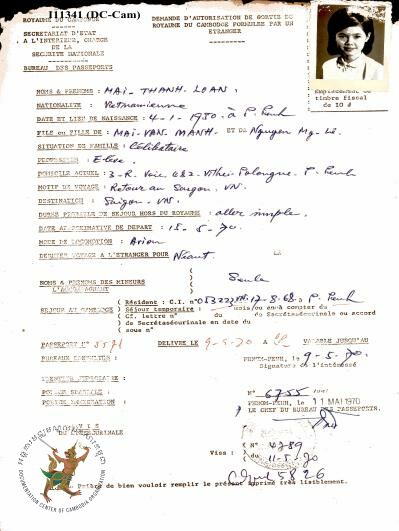 111341 (DC-Cam)
ROYAUME DU CAMBODGE
SECRETARIAT D'ETAT
A L'INTERIEUR, CHARGE
DE LA
SECURITE NATIONALE
BUREAU DES PASSEPORTS
DEMANDE D'AUTORISATION DE SORTIE DU
ROYAUME DU CAMBODGE FORMULEE PAR UN
ETRANGER
timbre fiscal
de 10 R
NOMS & PRENOMS : MAI-THANH-LOAN.
NATIONALITE : Vietnamienne
DATE ET LIEU DE NAISSANCE : 4-1-1950 à P. Penh
FILS ou FILLE DE : MAI-VAN MANH- ET DE Nguyen My-Lê.
SITUATION DE FAMILLE : Célibataire
PROFESSION : Elève.
DOMICILE ACTUEL : 3-R. Voie 482- P. Penh
MOTIF DE VOYAGE : Retour au Saigon. VN.
DESTINATION : Saigon. VN.
DUREE PROBABLE DE SEJOUR HORS DU ROYAUME : aller simple.
DATE APPROXIMATIVE DE DEPART : 15-5-70.
MODE DE LOCOMOTION : Avion
DERNIER VOYAGE A L'ETRANGER POUR Néant. LE
NOMS & PRENOMS DES MINEURS
L'ACCOMPAGNANT
Seule
SEJOUR AU CAMBODGE
Résident : C.I. n° 17-8-68 à P. Penh
Séjour temporaire : mois/ou en à compter du
Cf. lettre n° du de Secrétasécurinale ou accord
de Secrétasécurinale en date du
sous n°
PASSEPORT N° 3571 DELIVRE LE 9-5-70 à VALABLE JUSQU'AU
BUREAUX CONSULTES :
PHNOM-PENH, le 9-5-70.
Signature de l'intéressé
IDENTITE JUDICIAIRE :
POLICE SPECIALE :
N° 6755
PHNOM-PENH, le 11 MAI 1970
P. LE CHEF DU BUREAU DES PASSEPORTS.
AVIS
Visa : N° 4789
du 11-5-70
5826
DOCUMENTATION CENTER OF CAMBODIA ORGANIZATION
Prière de bien vouloir remplir le présent imprimé très lisiblement.